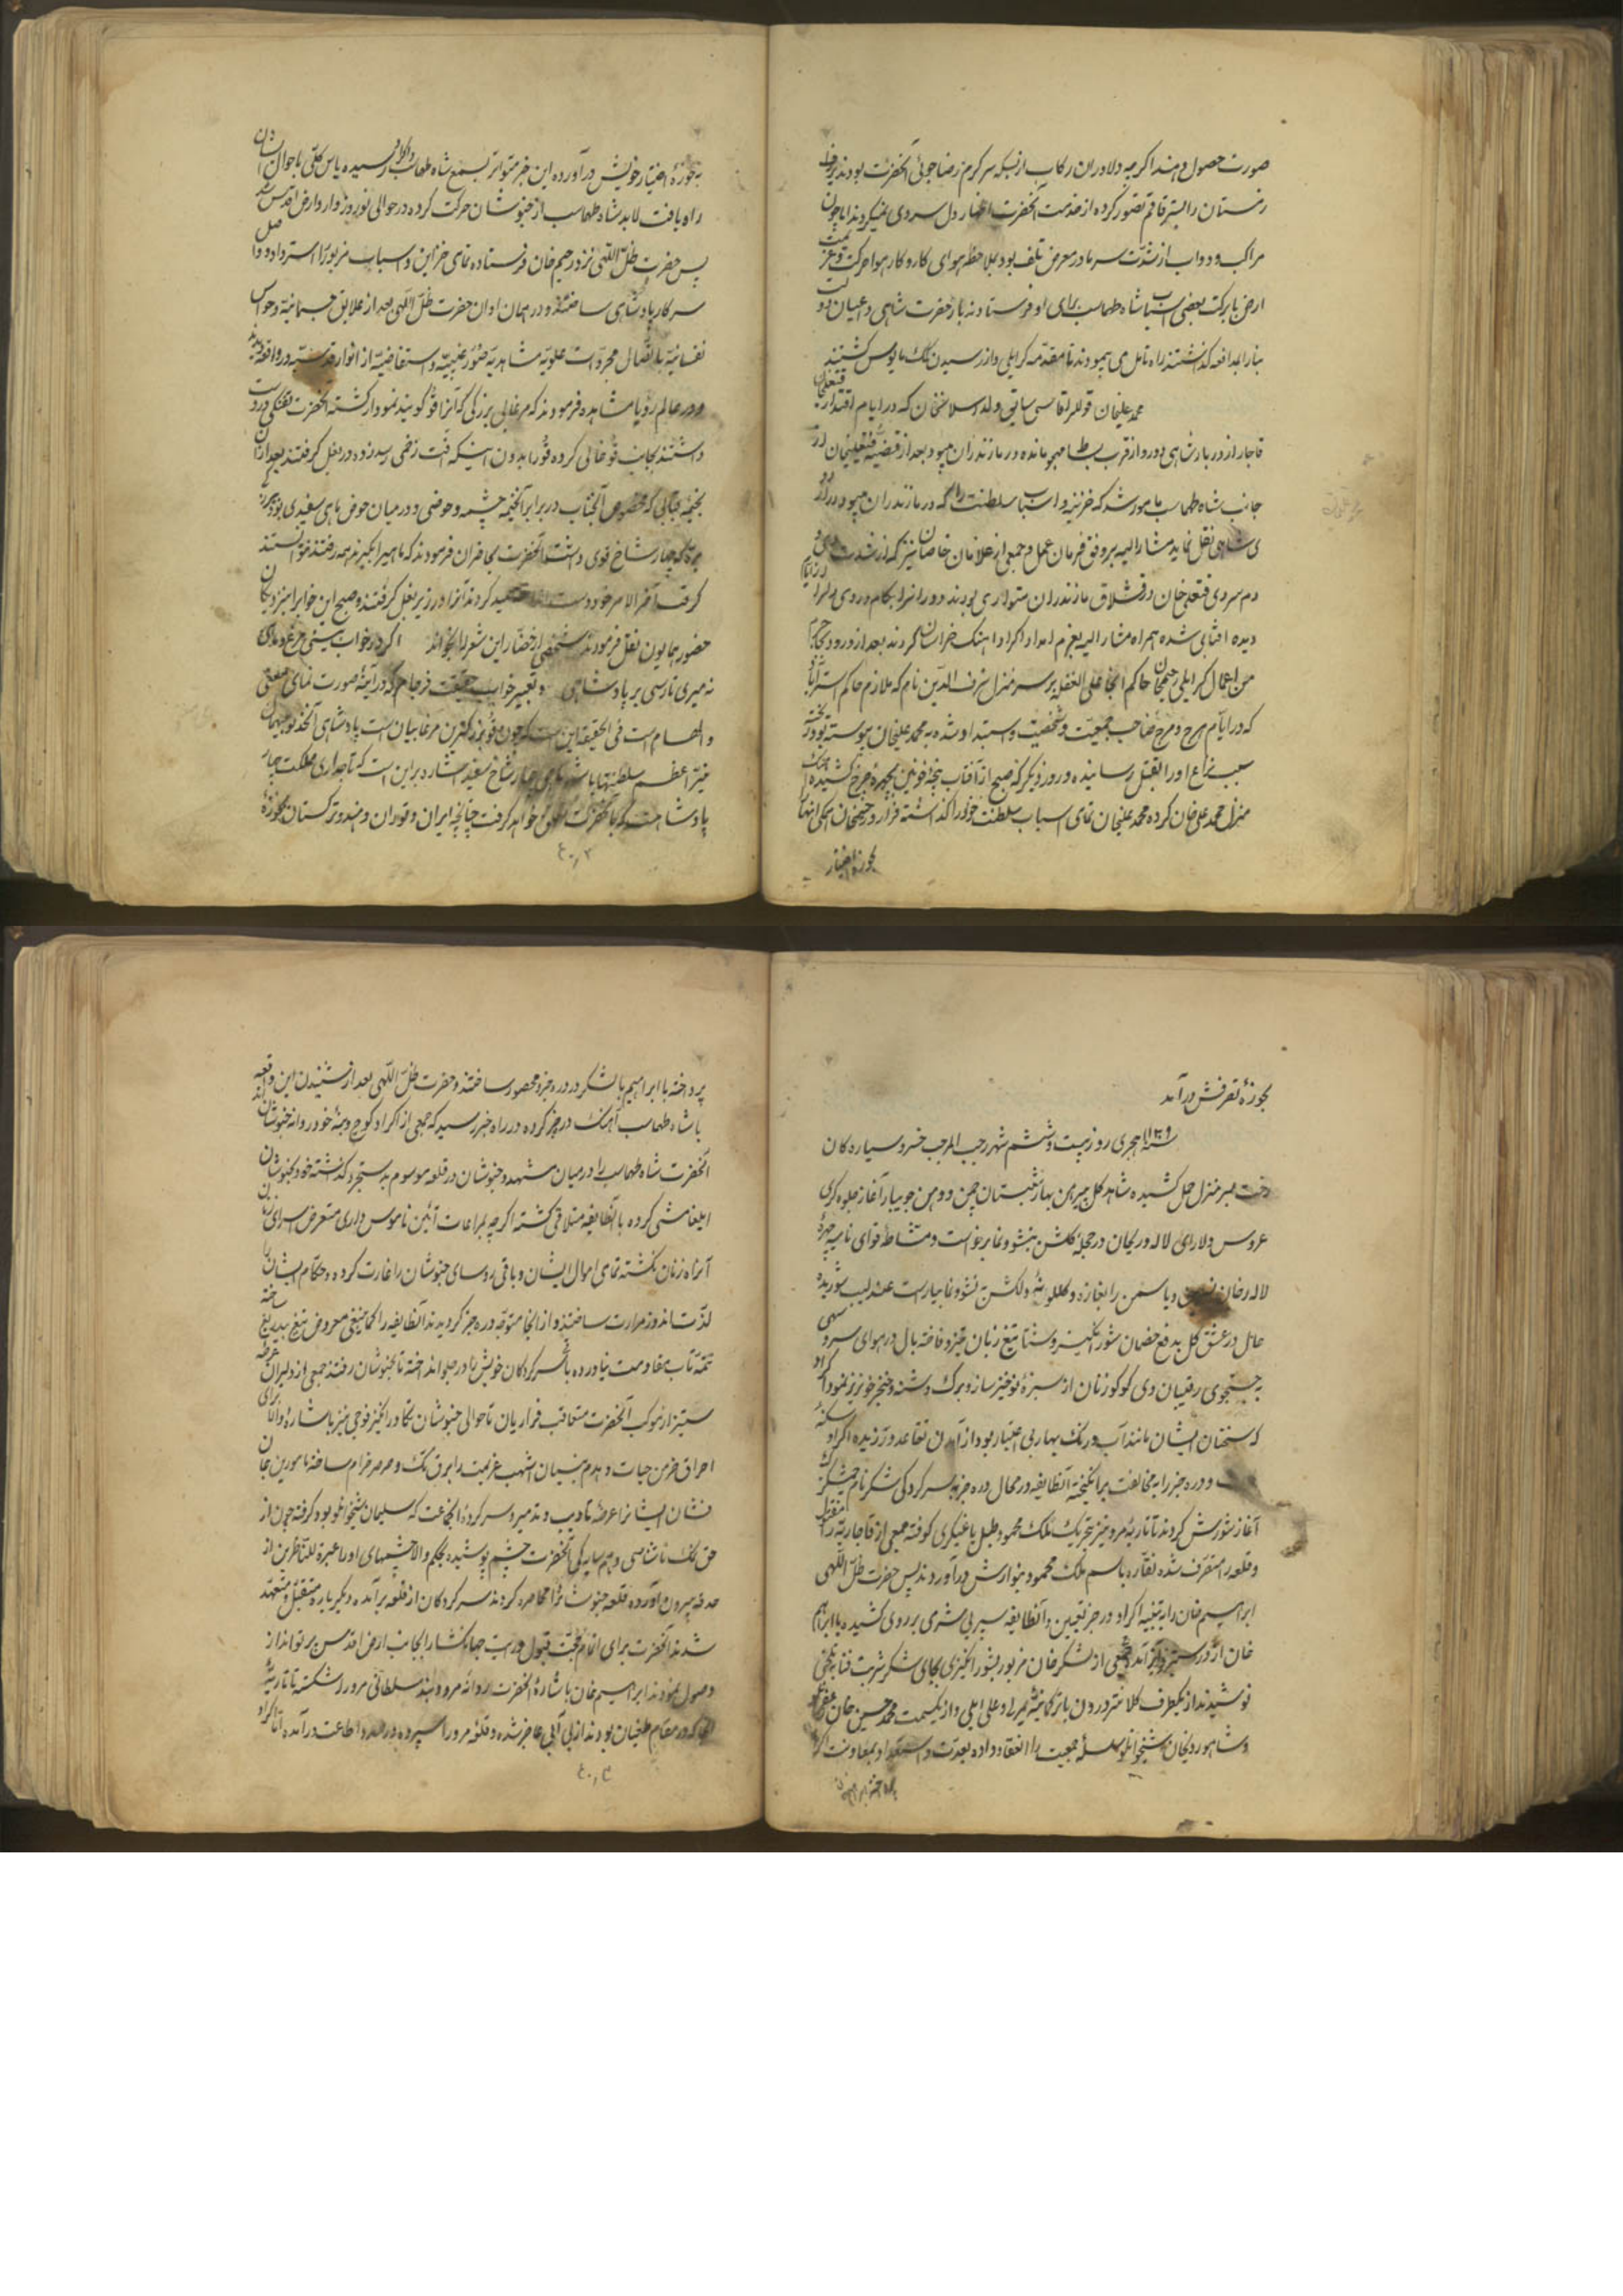 صورت حصول دهند اگرچه دلاوران رکاب از بسکه سرگرم رضاجوئی آنحضرت بودند برف
زمستان را بستر قاقم تصور کرده از خدمت آنحضرت اظهار دل سردی نمیکردند اما چون
مراکب و دواب از شدت سرما در معرض تلف بود بملاحظه هوای کار و کار هوا حرکت
ارض با برکت بعضی اسباب شاه طهماسب برای او فرستادند باز حضرت شاهی و اعیان دولت
بنا را بمدافعه گذاشتند راه تامل می پیمودند تا مقدمه کرایلی و از رسیدن کمک مایوس گشتند
محمد علیخان قوللر آقاسی سابق ولد اصلانخان که در ایام اقتدار فتحعلیخان
قاجار از دربار شاهی دور و از قرب بساط مهجور مانده در مازندران میبود بعد از قضیه فتحعلیخان از
جانب شاه طهماسب مامور شد که خزینه و اسباب سلطنت را که در مازندران میبود
شاهی نقل نماید مشار الیه بر وفق فرمان عمل و جمعی از غلامان خاصان نیز که از شدت
دم سردی فتحعلیخان در قشلاق مازندران متواری بودند دوران را بکام
دیده آفتابی شده همراه مشار الیه بعزم امداد اکراد آهنگ خراسان کردند بعد از ورود
من اعمال کرایلی رحیمخان حاکم آنجا علی الغفله بر سر منزل شرف الدین نام که ملازم حاکم استراباد
که در ایام هرج و مرج صاحب جمعیت و شخصیت و استبداد شده به محمد علیخان پیوسته بود
سبب نزاع او را بقتل رسانیده و روز دیگر که صبح از آفتاب پنجه خونین بچهره چرخ کشیده
منزل محمد علی خان کرده محمد علیخان تمامی اسباب سلطنت خود را گذاشته فرار و رحیمخان همگی آنها
بحوزه اختیار
بحوزه اختیار خویش در آورده این خبر متواتر بسمع شاه طهماسب رسیده یاس کلی باحوال
راه یافت لابد شاه طهماسب از خبوشان حرکت کرده در حوالی نوروز وارد ارض اقدس شد
پس حضرت ظل اللهی نزد رحیم خان فرستاده تمامی خزاین و اسباب مزبور را استرداد و واصل
سرکار پادشاهی ساختند و در همان اوان حضرت ظل اللهی بعد از علایق جسمانیه و حواس
نفسانیه باتصال مجردات علویه مشاهدیه صور غیبیه و استفاضیه از انوار قدسیه در واقعه
و در عالم رؤیا مشاهده فرمودند که مرغابی بزرگی که آنرا قو گویند نمودار گشته آنحضرت تفنگی در دست
داشتند بجانب قو خالی کرده قو را بدون اینکه آفت زخمی رسد زنده در بغل گرفتند بعد از آن
بخیمه قبابی که مخصوص آنجناب در برابر آنخیمه چشمه و حوضی و در میان حوض ماهی سفیدی بود
که چهار شاخ قوی داشت آنحضرت بحاضران فرمودند که ماهی را بگیرند همه رفتند نتوانستند
گرفت آخر الامر خود دست کردند آنرا در زیر بغل گرفتند و صبح این خواب را بنزدیکان
حضور همایون نقل فرمودند شخصی از حضار این شعر را بخواند اگر در خواب بینی مرغ و ماهی
نه میری تا رسی بر پادشاهی و تعبیر خواب حقیقت فرجام که در آینه صورت نمای
و الهام است فی الحقیقه این است که چون قو بزرگترین مرغابیان است پادشاهی
اعظم سلطنتها باشد ماهی چهار شاخ سفید اشاره بر این است که تاجداری مملکت چهار
پادشاه است که بآنحضرت تعلق خواهد گرفت چنانچه ایران و توران و هند و ترکستان بحوزه
بحوزه تصرفش درآمد
سنه ۱۱۳۹ هجری روز بیست و ششم شهر رجب المرجب خسرو سیاره کان
رخت بسر منزل حمل کشیده شاهد گل پیرهن بهار از شبستان چمن و دمن جویبار آغاز جلوه گری
عروس دلارای لاله و ریحان در حجله گلشن بنشو و نما برخواست و مشاطه قوای نامیه چهره
لاله رخان نسرین و یاسمن را بغازه و گلگونه دلکش نشو و نما بیاراست عندلیب شوریده
حال در عشق گل بدفع خصمان شور انگیز و سنان تیغ زبان تیز و فاخته بال در هوای سرو سهی
به جستجوی رقیبان وی کوکو زنان از سبزه نوخیز ساز و برگ دشنه و خنجر خونریز نمود اکراد
که سخنان ایشان مانند آب و رنگ بهار بی اعتبار بود از آمدن تقاعد ورزیده اکراد
و دره جز رایه مخالفت برانگیخته آنطایفه در محال دره جز بسرکردگی شکر نام چمشکزک
آغاز شورش کردند تاتاریه مرو نیز بتحریک ملک محمود طبل یاغیگری کوفته جمعی از قاجاریه را مقتل
و قلعه را متصرف شده نقاره باسم ملک محمود بنوازش در آوردند پس حضرت ظل اللهی
ابراهیم خان را به تنبیه اکراد در جز تعیین و آنطایفه سپر بی شرمی بر روی کشیده با ابراهیم
خان از در ستیز درآمده جمعی از لشکر خان مزبور بشور انگیزی بجای شکر شربت فنا به تلخی
نوشیدند از یکطرف کلانتر درون با ترکمانیه یمرلو و علی ایلی و از یکسمت محمد حسین خان
و شاهوردیخان شیخوانلو سلسله جمعیت را انعقاد داده بعدت و استعداد بمعاونت اکراد
پرداخته با ابراهیم
پرداخته با ابراهیم با لشکر در دره جز محصور ساختند و حضرت ظل اللهی بعد از شنیدن این واقعه
با شاه طهماسب آهنگ دره جز کرده در راه خبر رسید که جمعی از اکراد کوچ و بنه خود روانه خبوشان
آنحضرت شاه طهماسب را در میان مشهد و خبوشان در قلعه موسوم به سنجر گذشته خود بخبوشان
ایلغامشی کرده با آنطایفه متلاقی گشته اگرچه بمراعات آئین ناموس داری متعرض اسرای
آنراه زنان نگشته تمامی اموال ایشان و باقی روسای خبوشان را غارت کرده و حکام ایشان را
لذت اندوز مرارت ساختند و از آنجا متوجه دره جز گردیدند آنطایفه را کماینبغی معروض تیغ بیدریغ ساخته
تتمه تاب مقاومت نیاورده با سرکردگان خویش در جلو انداخته تا بخبوشان رفتند جمعی از دلیران عرصه
ستیز از موکب آنحضرت متعاقب فراریان تا حوالی خبوشان تکاور انگیز فوجی نیز باشاره والا برای
احراق خرمن حیات و هدم بنیان اشهب عزیمت را برق تک و صرصر خرام ساخته مامورین
نشان ایشانرا عرضه تادیب و تدمیر و سرکرده آنجماعت که سلیمان شیخوانلو بود گرفته چون از
حق نمک ناشناسی و بی سایرگی آنحضرت چشم پوشیده بحکم والا چشمهای او را عبرة للناظرین از
حدقه بیرون آورده قلعه خبوشانرا محاصره کردند سرکردگان از قلعه برآمده و دیگر باره متقبل و متعهد
شدند آنحضرت برای اتمام حجت قبول و رایت جهانگشا را بجانب ارض اقدس پرتو انداز
وصول نمودند ابراهیم خان باشاره آنحضرت روانه مرو و بند سلطانی مرو را شکسته تاتاریه
که در مقام طغیان بودند از بی آبی عاجز شده و قلعه مرو را سپرده در صدد اطاعت درآمده اکراد